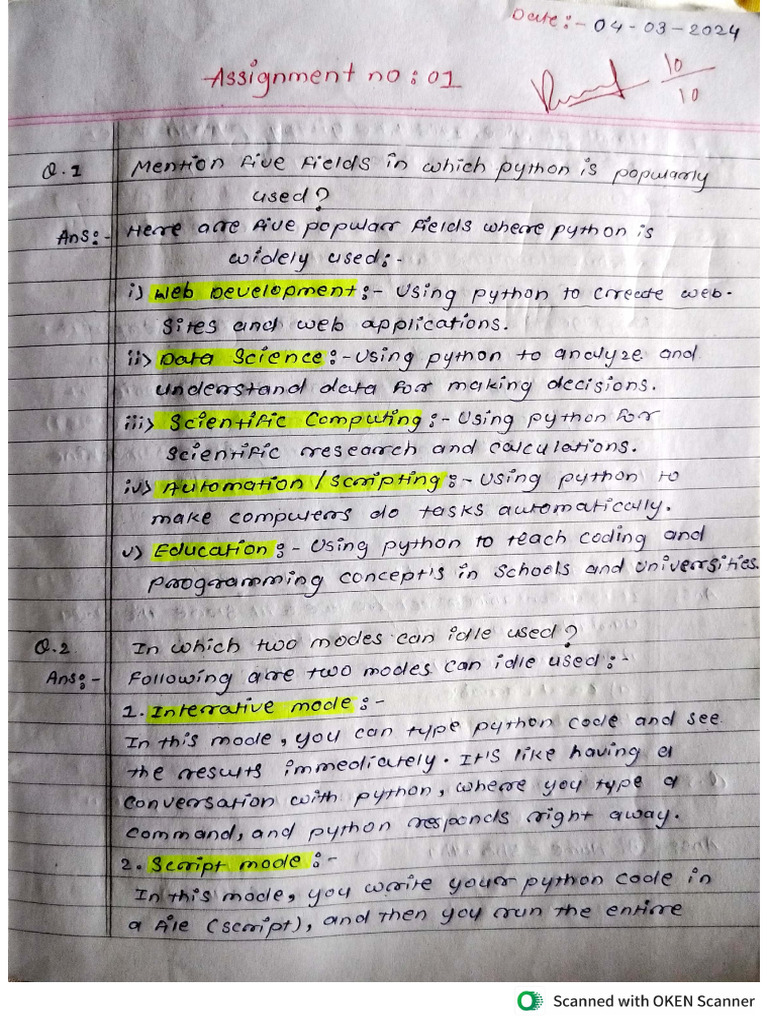 Date:- 04-03-2024
Assignment no: 01
10
10
Q.1 Mention five fields in which python is popularly
used?
Ans:- Here are five popular fields where python is
widely used:-
i) Web Development:- Using python to create web-
sites and web applications.
ii) Data Science:- Using python to analyze and
understand data for making decisions.
iii) Scientific Computing:- Using python for
scientific research and calculations.
iv) Automation / Scripting:- Using python to
make computers do tasks automatically.
v) Education:- Using python to teach coding and
programming concept's in schools and universities.
Q.2 In which two modes can idle used?
Ans:- Following are two modes can idle used:-
1. Interative mode:-
In this mode, you can type python code and see
the results immediately. It's like having a
conversation with python, where you type a
command, and python responds right away.
2. Script mode:-
In this mode, you write your python code in
a file (script), and then you run the entire
Scanned with OKEN Scanner